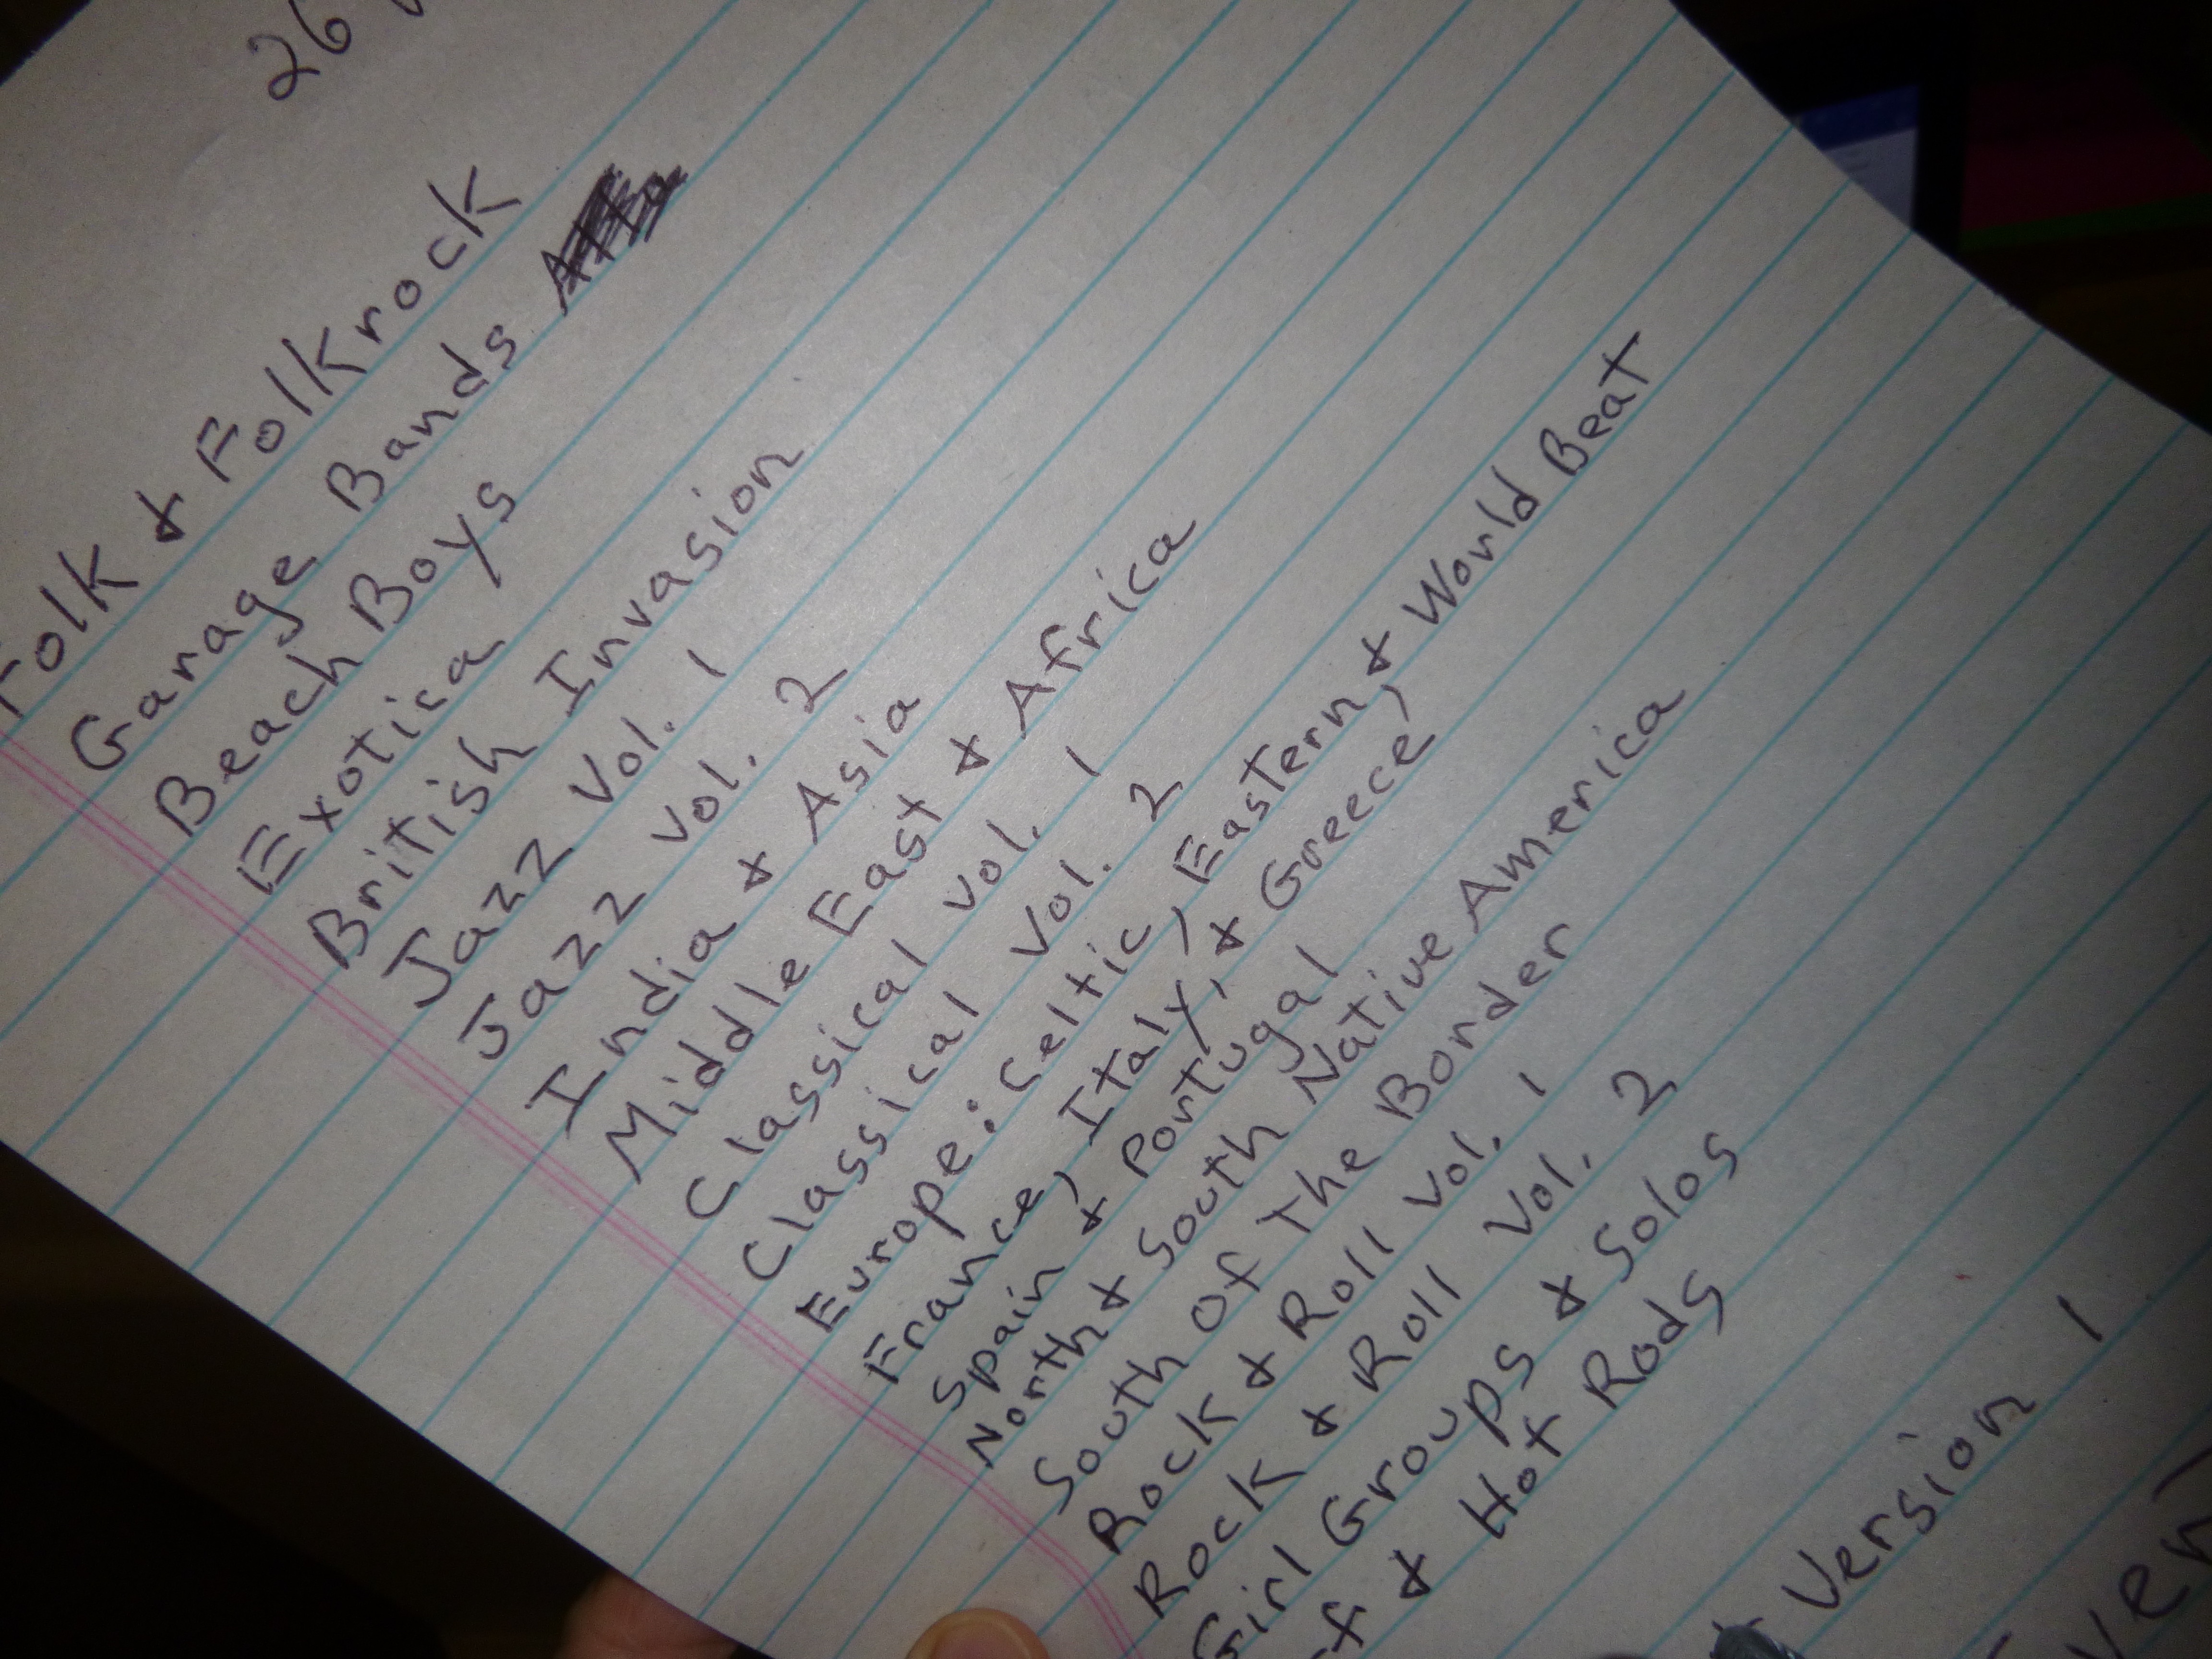 26
Folk & Folkrock
Garage Bands
Beach Boys
Exotica
British Invasion
Jazz Vol. 1
Jazz Vol. 2
India & Asia
Middle East & Africa
Classical Vol. 1
Classical Vol. 2
Europe: Celtic, Eastern, & World Beat
France, Italy, & Greece,
Spain & Portugal
North & South Native America
South Of The Border
Rock & Roll Vol. 1
Rock & Roll Vol. 2
Girl Groups & Solos
& Hot Rods
Version 1